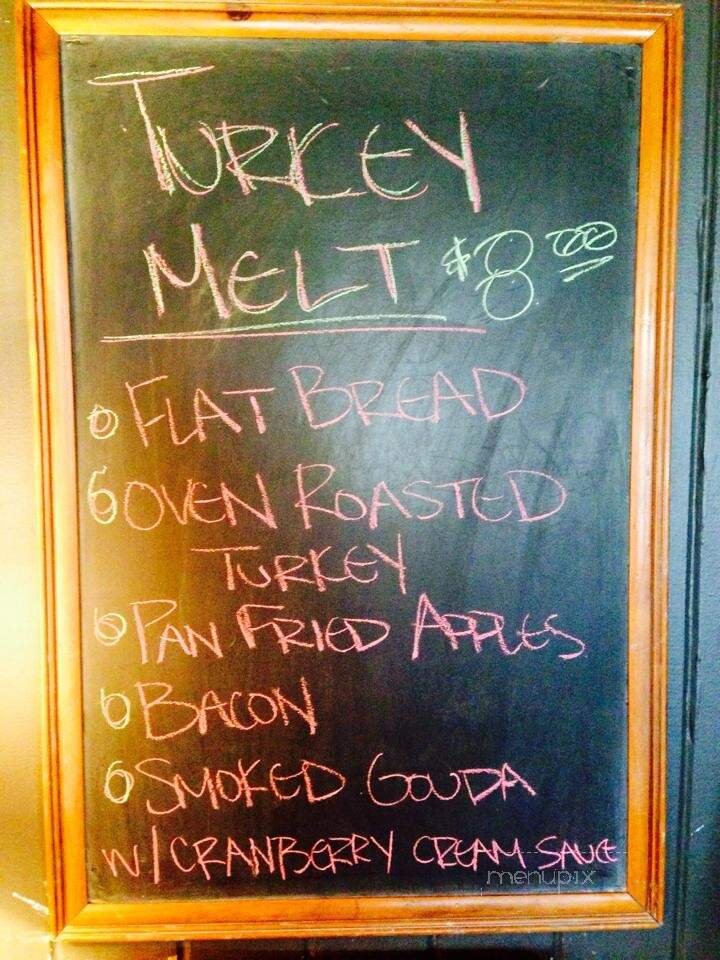 TURKEY
MELT $8.00
FLAT BREAD
OVEN ROASTED
TURKEY
PAN FRIED APPLES
BACON
SMOKED GOUDA
W/ CRANBERRY CREAM SAUCE
menupix